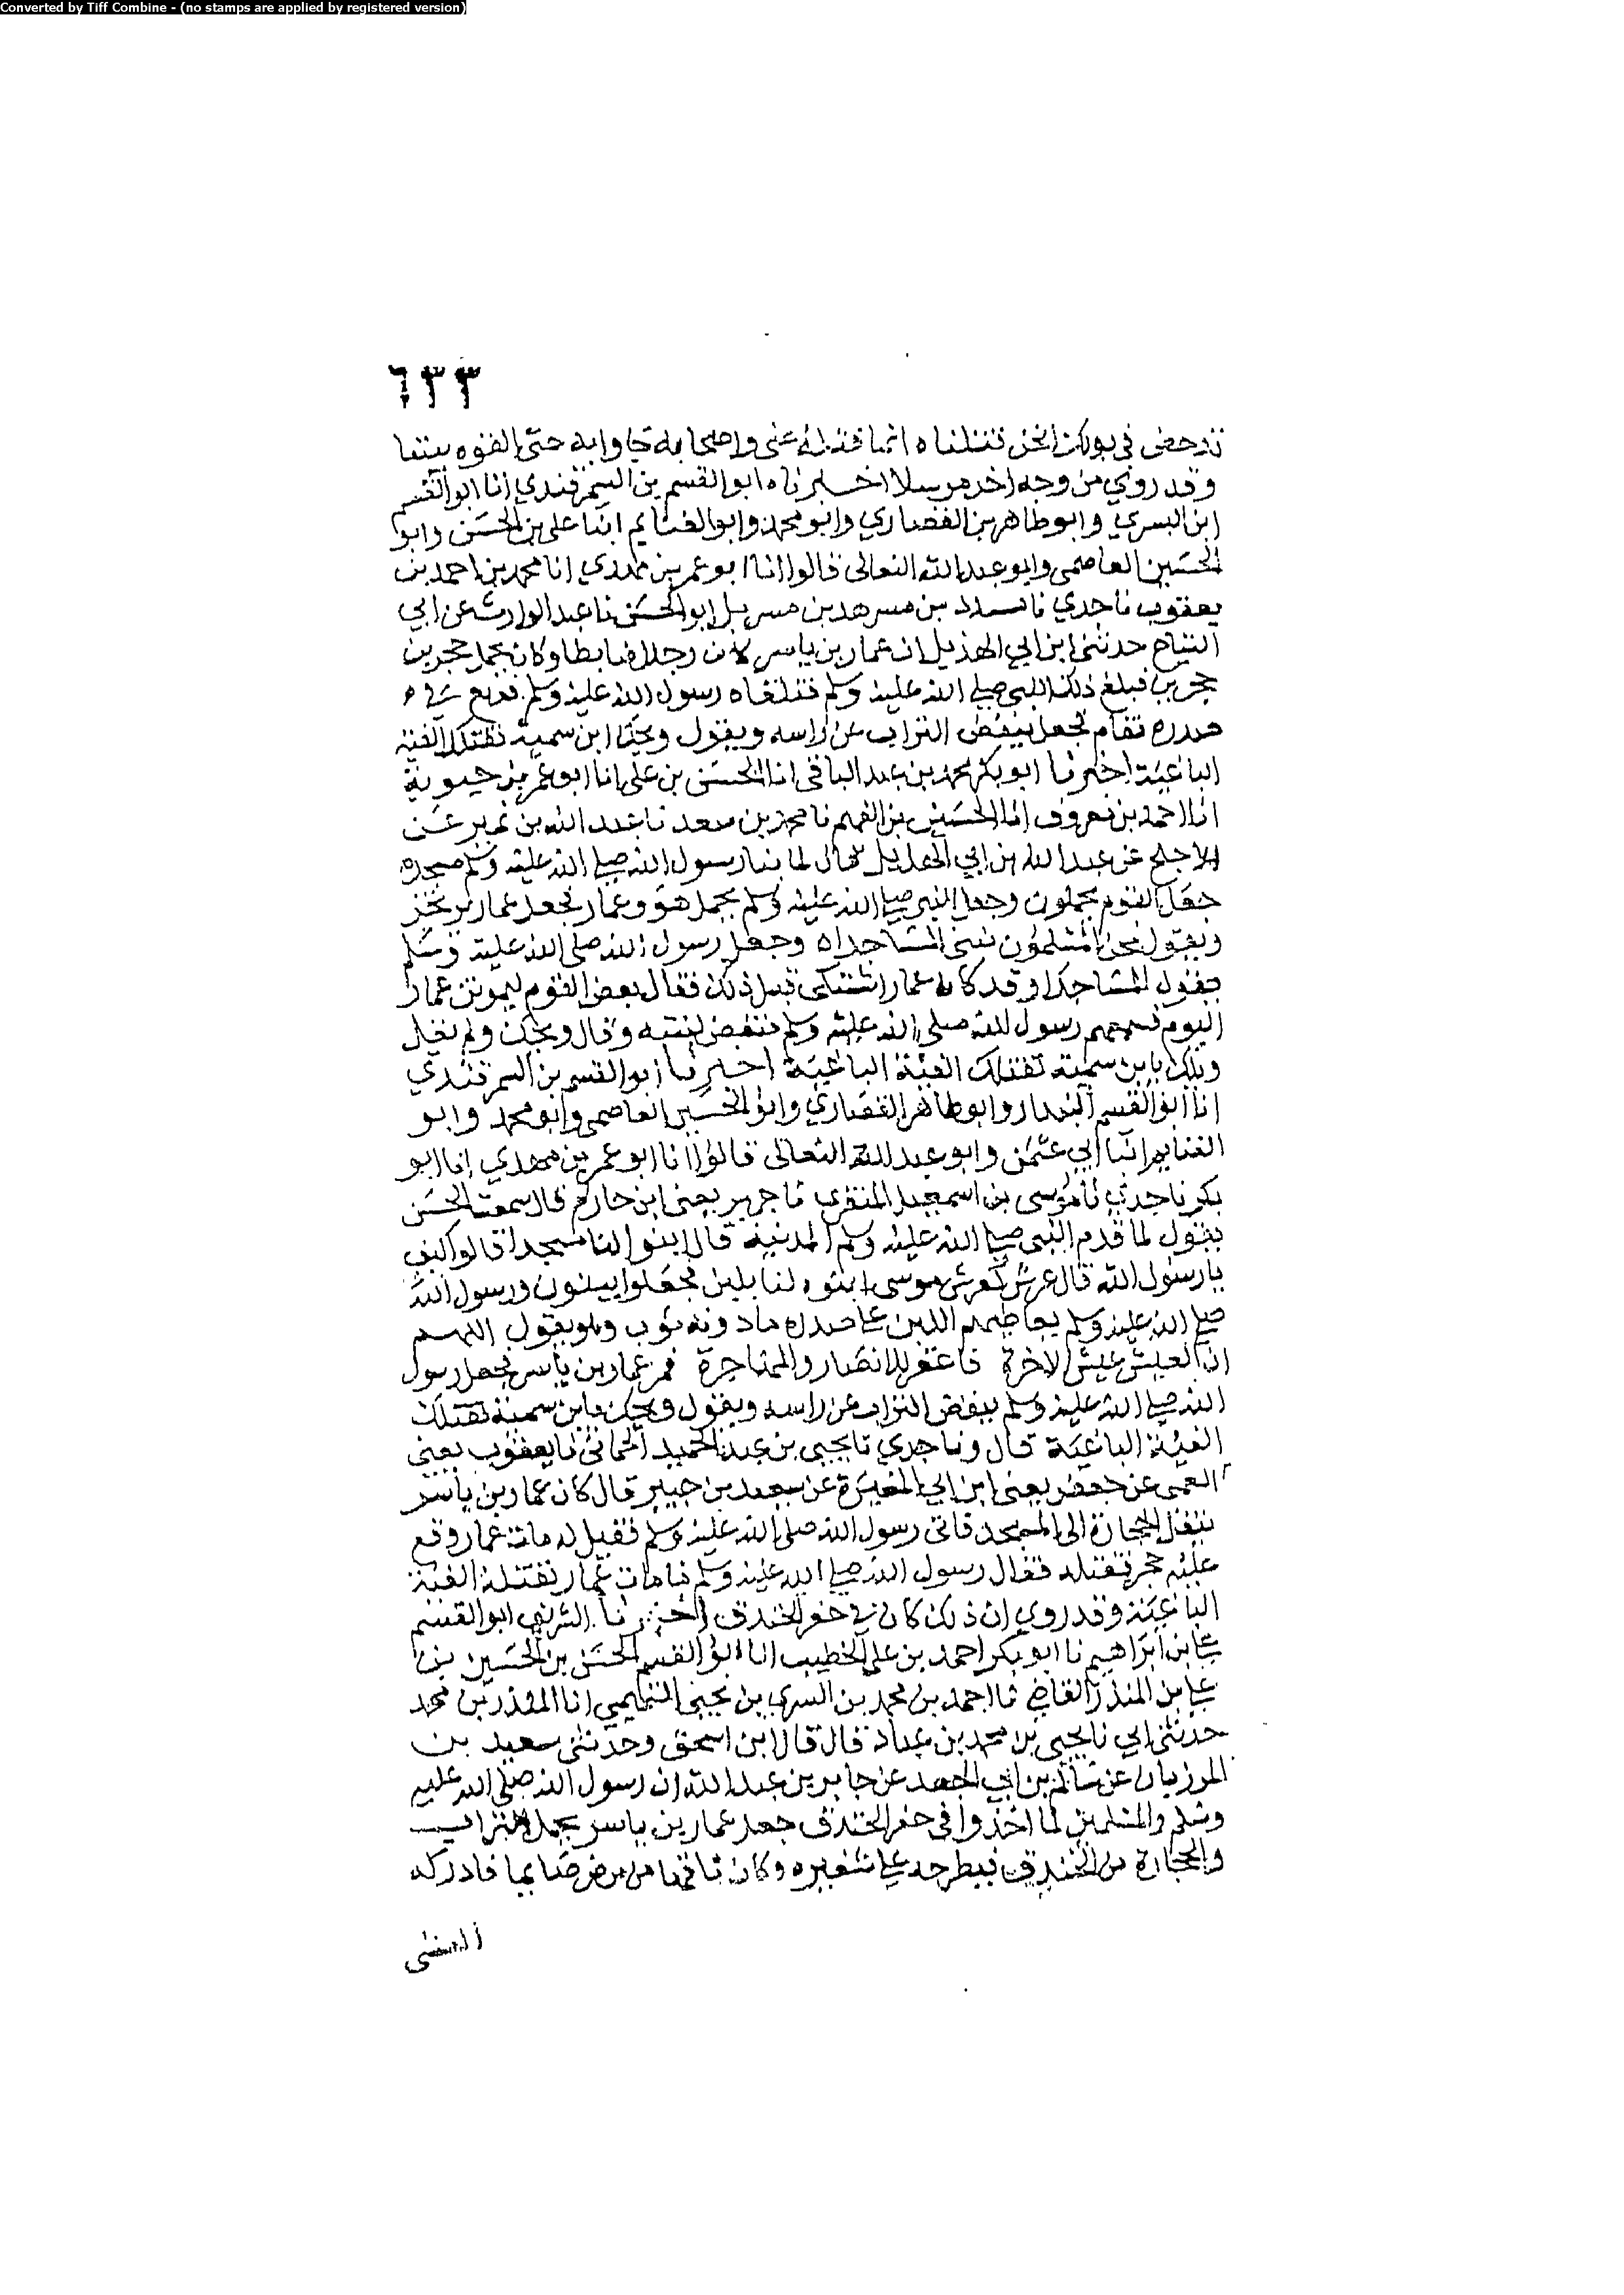 Converted by Tiff Combine - (no stamps are applied by registered version)
٦٣٣
تدحض في بولك انحن قتلناه انما قتله علي واصحابه جاوا به حتى القوه بيننا
وقد روي من وجه اخر مرسلا اخبرناه ابو القسم بن السمرقندي انا ابو القسم
ابن البسري وابو طاهر بن القصاري وابو محمد وابو الغنايم ابنا علي بن الحسن وابو
الحسين العاصمي وابو عبد الله النعالي قالوا انا ابو عمر بن مهدي انا محمد بن احمد بن
يعقوب نا جدي نا مسدد بن مسرهد بن مسربل ابو الحسن نا عبد الوارث عن ابي
التياح حدثني ابن ابي الهذيل ان عمار بن ياسر كان رجلا ضابطا وكان يحمل حجرين
حجرين فبلغ ذلك النبي صلى الله عليه وسلم فتلقاه رسول الله عليه وسلم فدفع في
صدره فقام فجعل ينفض التراب عن راسه ويقول ويحك ابن سمية تقتلك الفئة
الباغية اخبرنا ابو بكر محمد بن عبد الباقي انا الحسن بن علي انا ابو عمر بن حيوية
انا احمد بن معروف انا الحسين بن الفهم نا محمد بن سعد نا عبد الله بن نمير عن
الاجلح عن عبد الله بن ابي الهذيل قال لما بنا رسول الله صلى الله عليه وسلم مسجده
جعل القوم يحملون وجعل النبي صلى الله عليه وسلم يحمل هو وعمار فجعل عمار يرتجز
ويقول نحن المسلمون نبني المساجدا وجعل رسول الله صلى الله عليه وسلم
يقول المساجدا وقد كان عمار اشتكى قبل ذلك فقال بعض القوم ليموتن عمار
اليوم فسمعهم رسول الله صلى الله عليه وسلم فنفض لبنته وقال ويحك ولم يقل
ويلك يا ابن سمية تقتلك الفئة الباغية اخبرنا ابو القسم بن السمرقندي
انا ابو القسم البندار وابو طاهر القصاري وابو الحسين العاصمي وابو محمد وابو
الغنايم ابنا ابي عثمن وابو عبد الله النعالي قالوا انا ابو عمر بن مهدي انا ابو
بكر نا جدي نا موسى بن اسمعيل المنقري نا جرير يعني ابن حازم قال سمعت الحسن
يقول لما قدم النبي صلى الله عليه وسلم المدينة قال ابنوا لنا مسجدا قالوا كيف
يا رسول الله قال عرش كعرش موسى ابنوه لنا بلبن فجعلوا يبنون ورسول الله
صلى الله عليه وسلم يعاطيهم اللبن على صدره ما دونه ثوب وهو يقول اللهم
ان العيش عيش الاخرة فاغفر للانصار والمهاجرة فمر عمار بن ياسر فجعل رسول
الله صلى الله عليه وسلم ينفض التراب عن راسه ويقول ويحك يا ابن سمية تقتلك
الفئة الباغية قال ونا جدي نا يحيى بن عبد الحميد الحماني نا يعقوب يعني
العمي عن جعفر يعني ابن ابي المغيرة عن سعيد بن جبير قال كان عمار بن ياسر
ينقل الحجارة الى المسجد فاتى رسول الله صلى الله عليه وسلم فقيل له مات عمار وقع
عليه حجر فقتله فقال رسول الله صلى الله عليه وسلم ما مات عمار تقتله الفئة
الباغية وقد روي ان ذلك كان في حفر الخندق اخبرنا الشريف ابو القسم
علي بن ابراهيم نا ابو بكر احمد بن علي الخطيب انا ابو القسم الحسن بن الحسين بن
علي بن المنذر القاضي نا احمد بن محمد بن السري بن يحيى التميمي انا المنذر بن محمد
حدثني ابي نا يحيى بن محمد بن عباد قال قال ابن اسحق وحدثني سعيد بن
المرزبان عن سالم بن ابي الجعد عن جابر بن عبد الله ان رسول الله صلى الله عليه
وسلم والمسلمين لما اخذوا في حفر الخندق جعل عمار بن ياسر يحمل التراب
والحجارة من الخندق فيطرحه على شفيره وكان ناقها من مرض صايما فادركه
الغشي